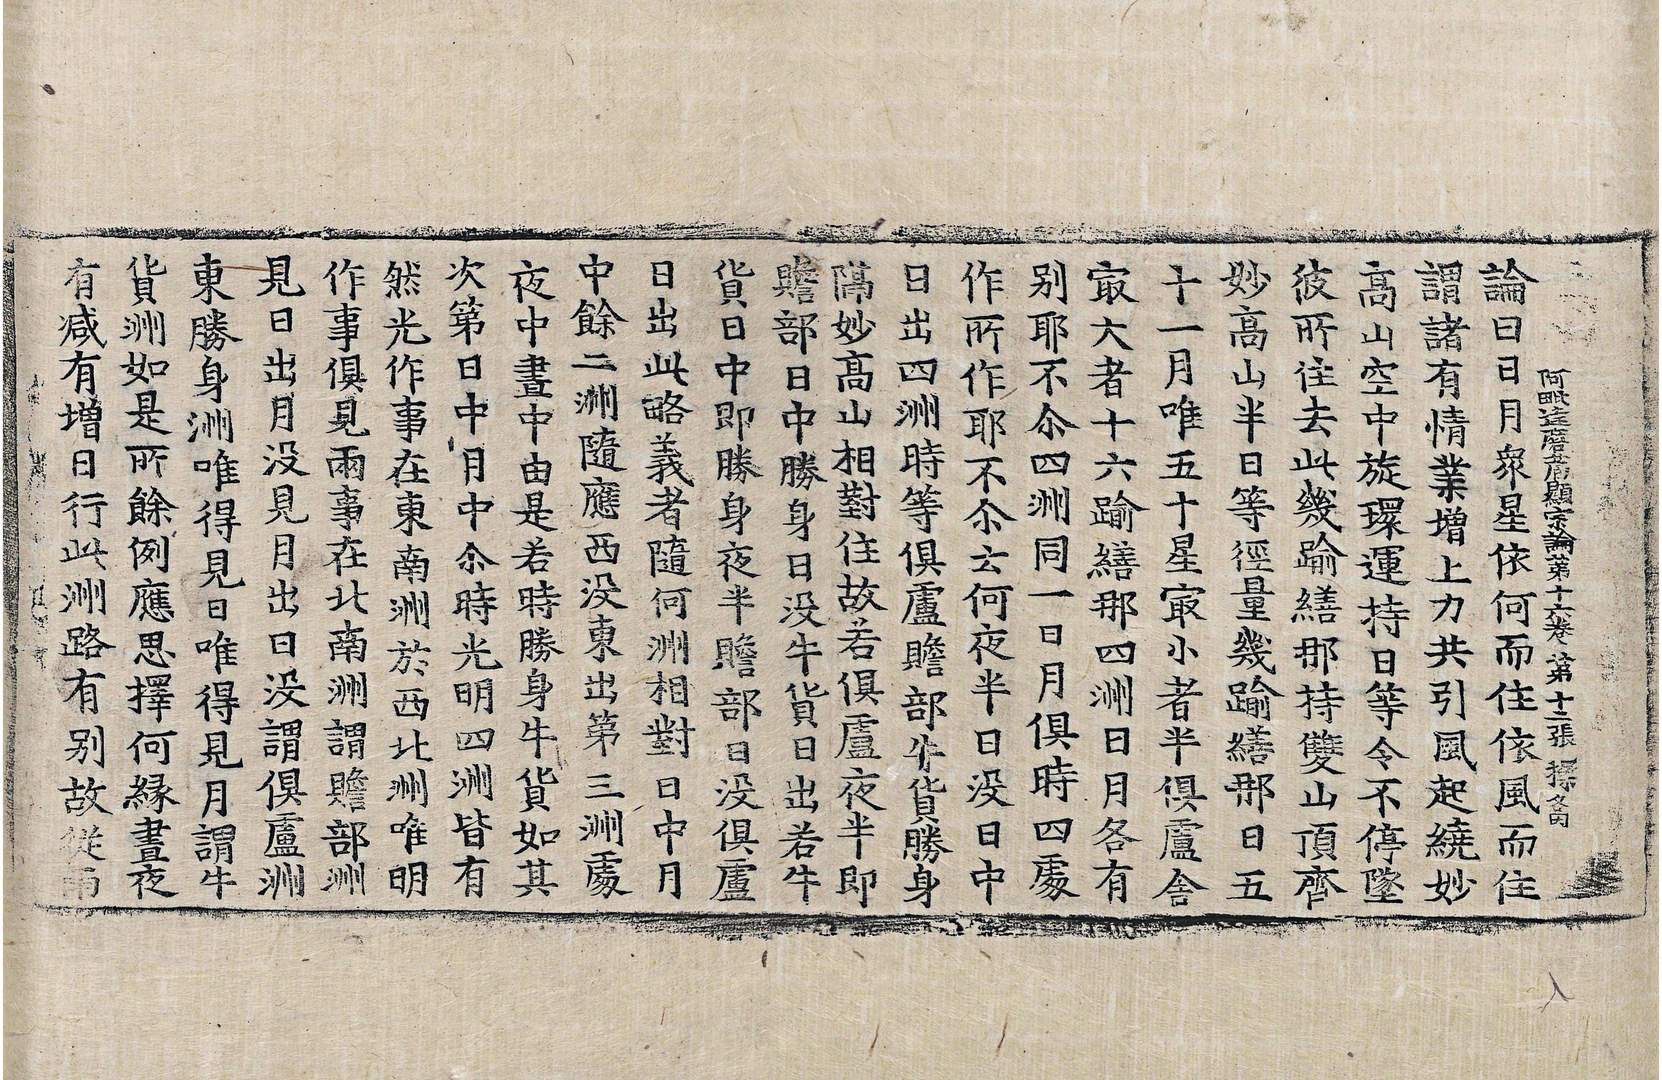 阿毗達磨藏顯宗論第十六卷 第十二張
論曰日月衆星依何而住依風而住
謂諸有情業増上力共引風起繞妙
高山空中旋環運持日等令不停墜
彼所住去此幾踰繕那持雙山頂齊
妙高山半日等徑量幾踰繕那日五
十一月唯五十星㝡小者半俱盧舍
㝡大者十六踰繕那四洲日月各有
别耶不尒四洲同一日月俱時四處
作所作耶不尒云何夜半日没日中
日出四洲時等俱盧贍部牛貨勝身
隔妙高山相對住故若俱盧夜半即
贍部日中勝身日没牛貨日出若牛
貨日中即勝身夜半贍部日没俱盧
日出此略義者隨何洲相對日中月
中餘二洲隨應西没東出第三洲處
夜中晝中由是若時勝身牛貨如其
次第日中月中尒時光明四洲皆有
然光作事在東南洲於西北洲唯明
作事俱見兩事在北南洲謂贍部洲
見日出月没見月出日没謂俱盧洲
東勝身洲唯得見日唯得見月謂牛
貨洲如是所餘例應思擇何縁晝夜
有减有増日行此洲路有别故從雨